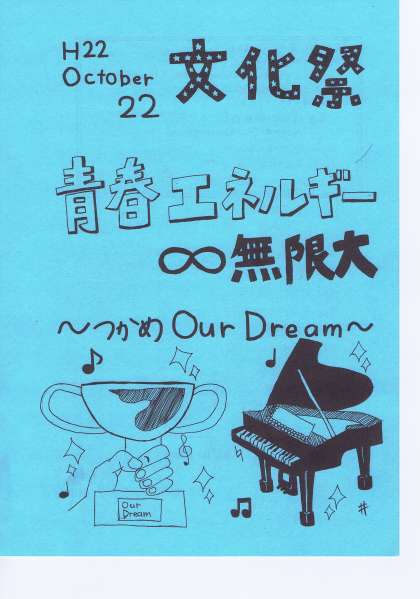 H22
October
22
文化祭
青春エネルギー
∞無限大
～つかめ Our Dream～
Our
Dream